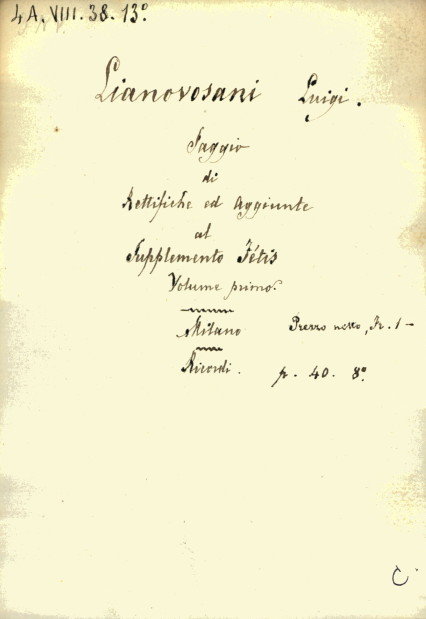 4A.VIII.38.13º
Lianovosani Luigi.
Saggio
di
Rettifiche ed Aggiunte
al
Supplemento Fétis
Volume primo.
Milano Prezzo netto, Fr. 1 –
Ricordi. p. 40. 8º
C